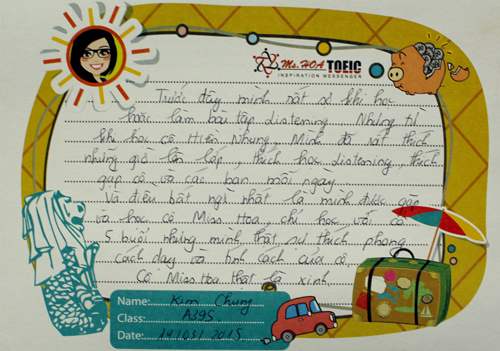 Ms. HOA TOEIC
INSPIRATION MESSENGER
Trước đây mình rất sợ khi học
hoặc làm bài tập listening. Nhưng từ
khi học cô Hiền Nhung, Mình đã rất thích
những giờ lên lớp, thích học listening, thích
gặp cô và các bạn mỗi ngày.
Và điều bất ngờ nhất là mình được gặp
và học cô Miss Hoa, chỉ học với cô
5 buổi nhưng mình thật sự thích phong
cách dạy và tính cách của cô.
Cô Miss Hoa thật là xinh.
Name: Kim Chung
Class: A395
Date: 14/05/2015